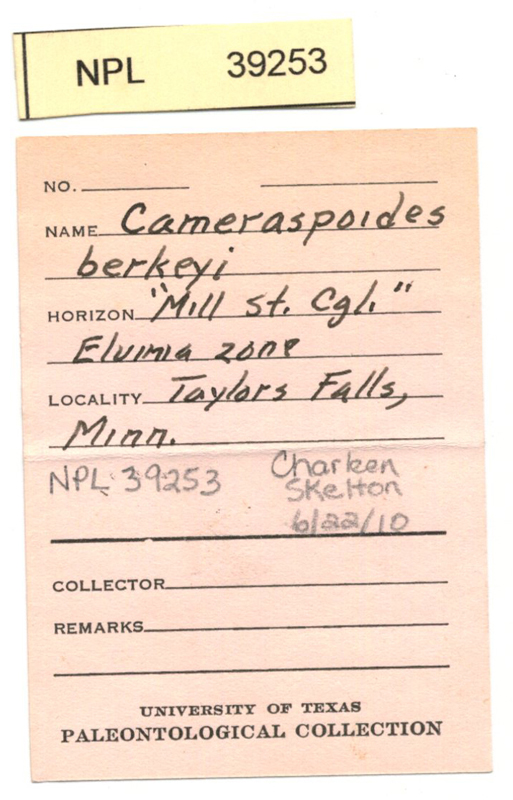 NPL 39253
NO.
NAME Cameraspoides
berkeyi
HORIZON "Mill St. Cgl."
Elvinia zone
LOCALITY Taylors Falls,
Minn.
NPL 39253 Charleen
Skelton
6/22/10
COLLECTOR
REMARKS
UNIVERSITY OF TEXAS
PALEONTOLOGICAL COLLECTION